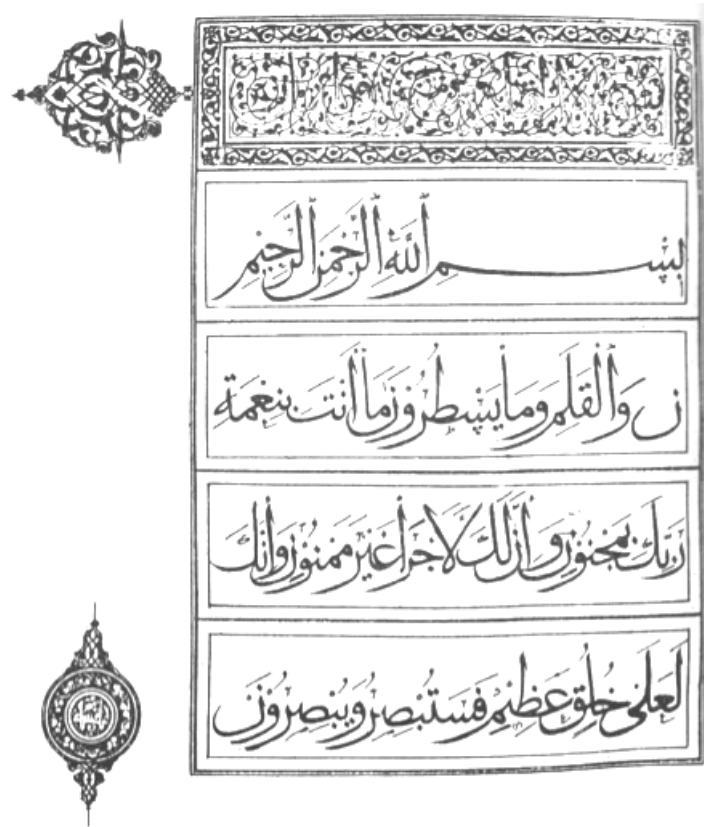 بِسْمِ اللَّهِ الرَّحْمَٰنِ الرَّحِيمِ
ن وَالْقَلَمِ وَمَا يَسْطُرُونَ مَا أَنْتَ بِنِعْمَةِ
رَبِّكَ بِمَجْنُونٍ وَإِنَّ لَكَ لَأَجْرًا غَيْرَ مَمْنُونٍ وَإِنَّكَ
لَعَلَىٰ خُلُقٍ عَظِيمٍ فَسَتُبْصِرُ وَيُبْصِرُونَ